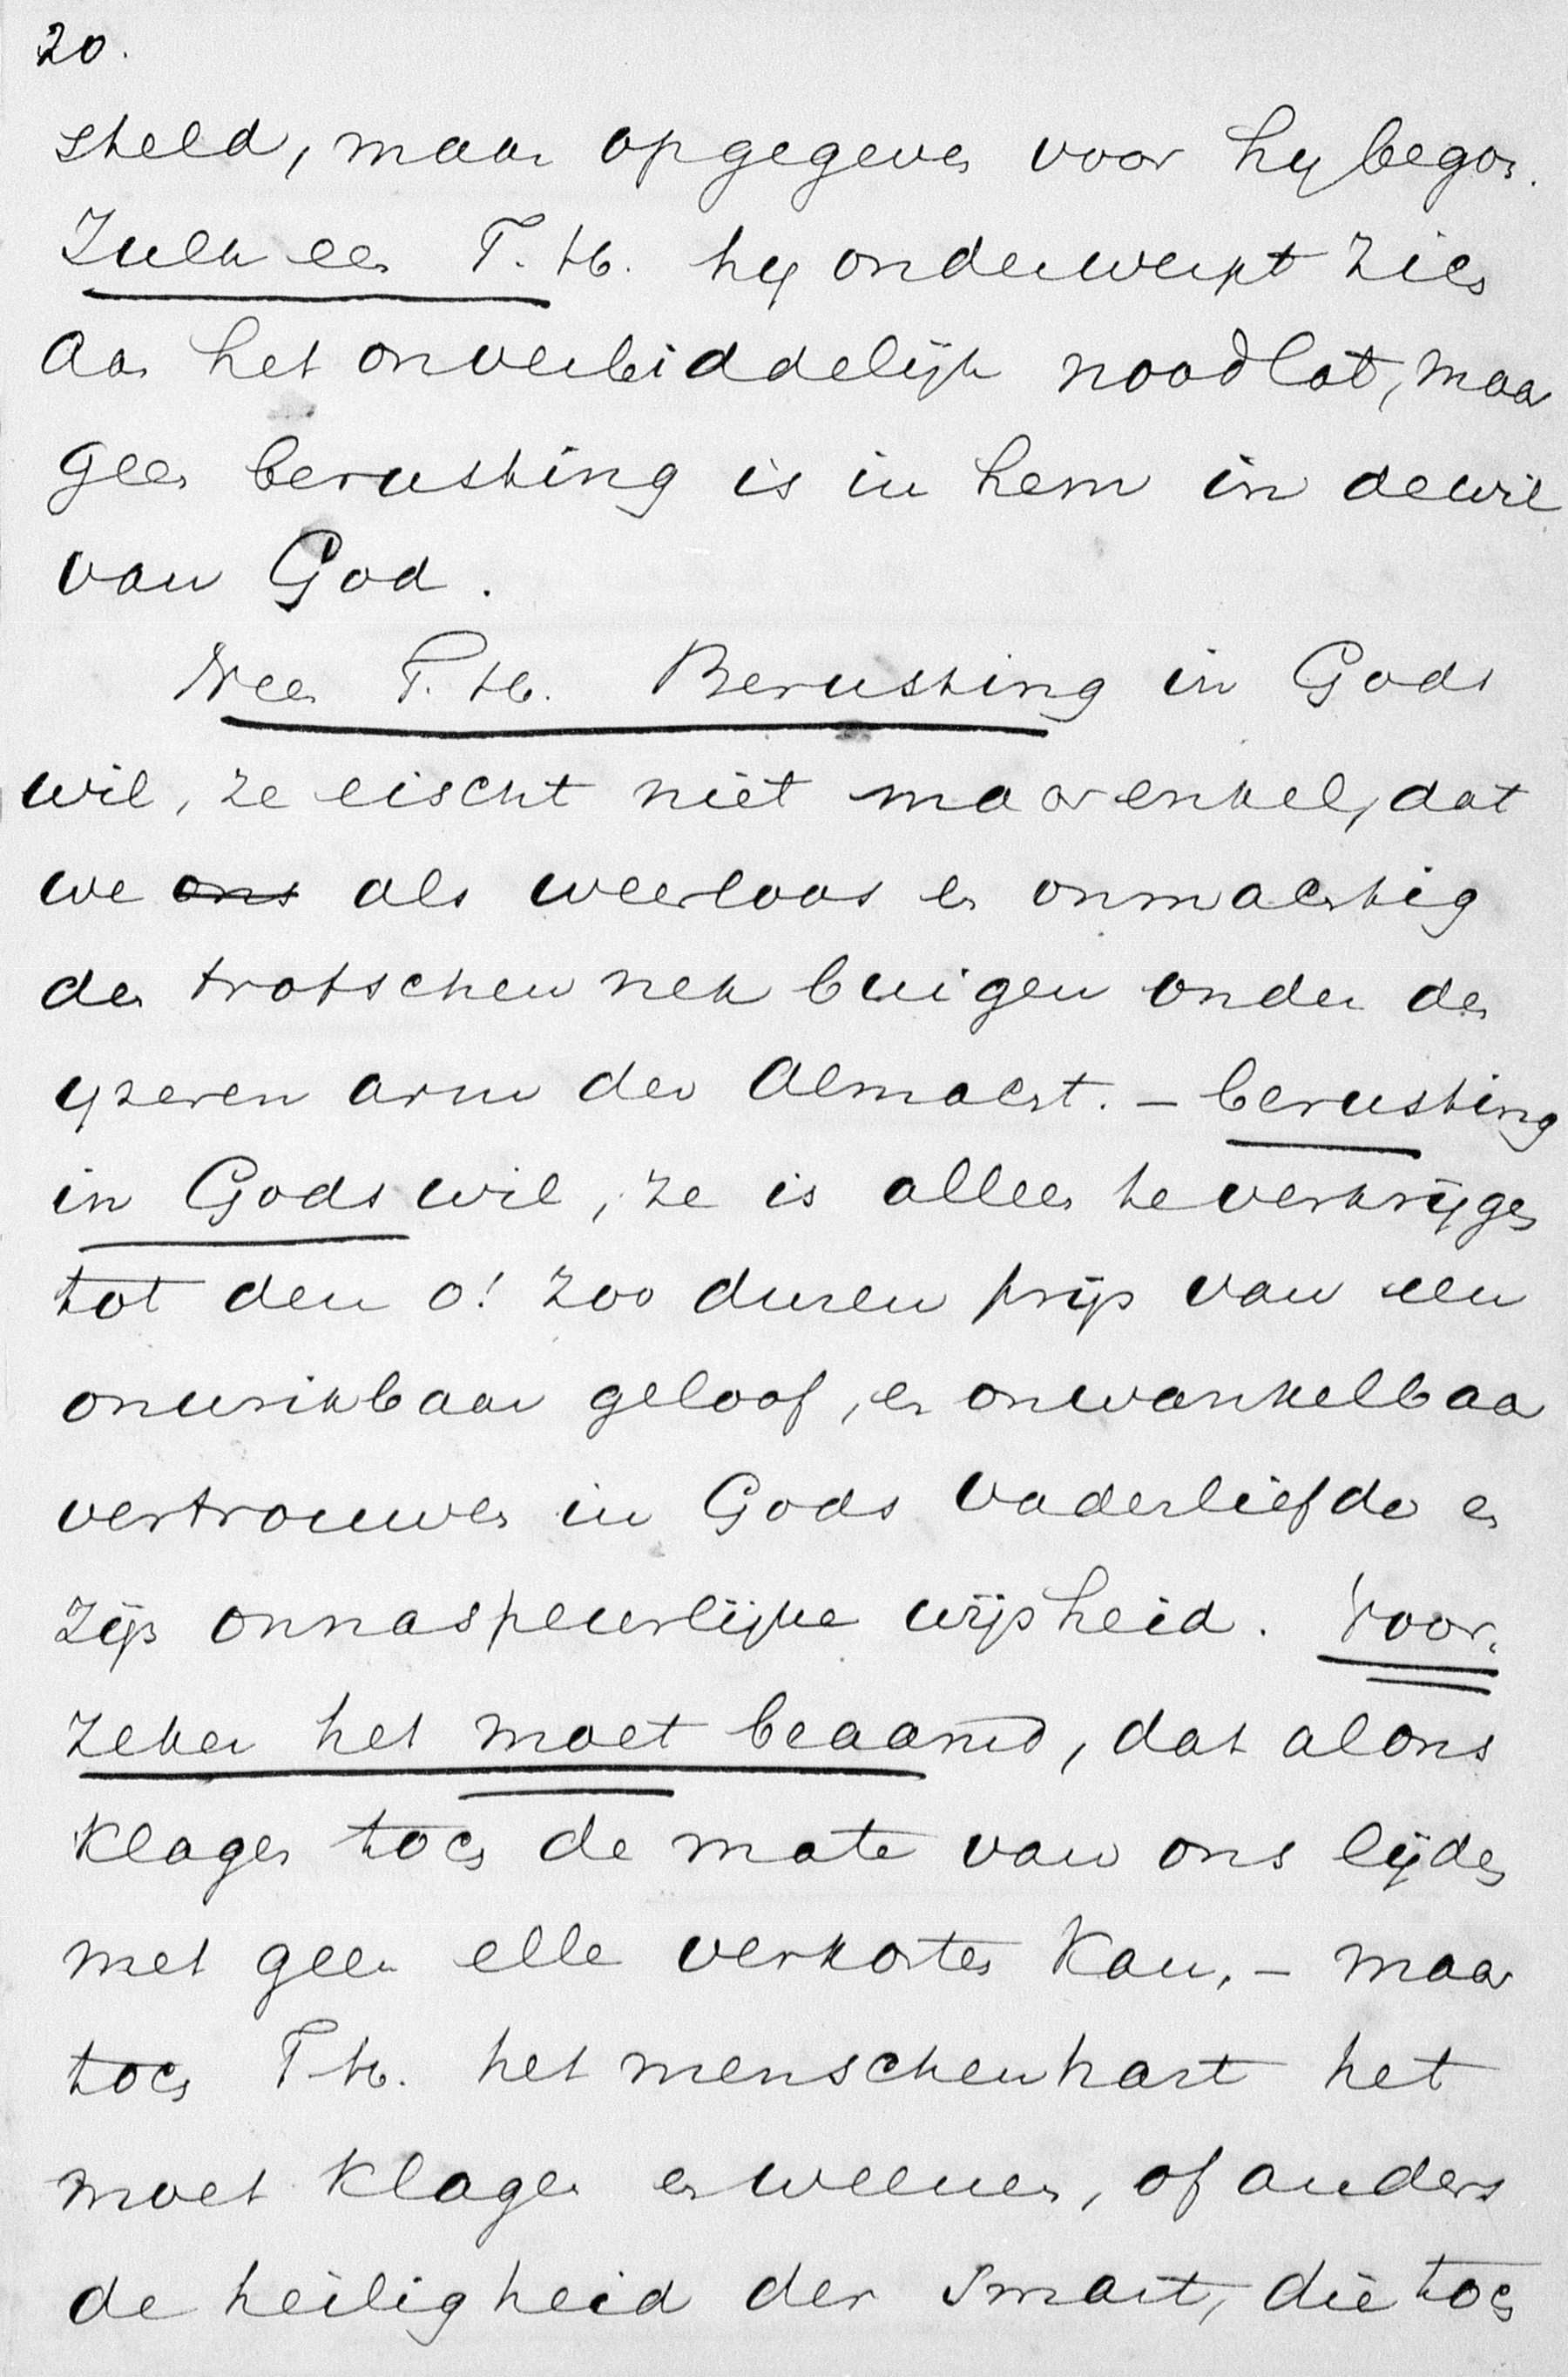 20.
steld, maar opgegeven voor hy begon.
Zulk een T. H. hy onderwerpt zich
aan het onverbiddelijk noodlot, maar
geen berusting is in hem in de wil
van God.
Neen T. H. Berusting in Gods
wil, ze eischt niet maar enkel, dat
we ons als weerloos en onmachtig
den trotschen nek buigen onder den
yzeren arm der Almacht. – berusting
in Gods wil, ze is alleen te verkrijgen
tot den o! zoo duren prijs van een
onwrikbaar geloof, en onwankelbaar
vertrouwen in Gods vaderliefde en
zijn onnaspeurlijke wijsheid. Voor-
zeker het moet beaamd, dat al ons
klagen toch de mate van ons lijden
met geen elle verkorten kan, – maar
toch T H. het menschenhart het
moet klagen en weenen, of anders
de heiligheid der smart, die toch